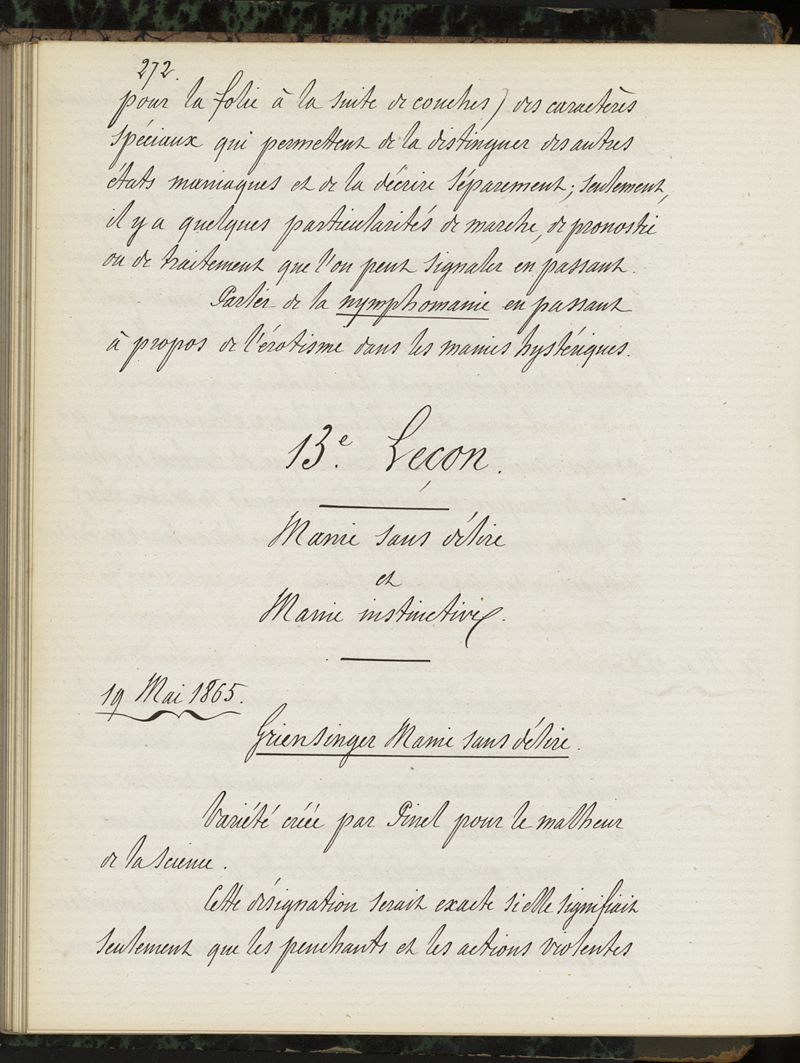 272.
pour la folie à la suite de couches) des caractères
spéciaux qui permettent de la distinguer des autres
états maniaques et de la décrire séparement; seulement,
il y a quelques particularités de marche, de pronostic
ou de traitement que l'on peut signaler en passant.
Parler de la nymphomanie en passant
à propos de l'érotisme dans les manies hystériques.
13e. Leçon.
Manie sans délire
et
Manie instinctive.
19 Mai 1865.
Griensinger Manie sans délire.
Variété créée par Pinel pour le malheur
de la science.
Cette désignation serait exacte si elle signifiait
seulement que les penchants et les actions violentes